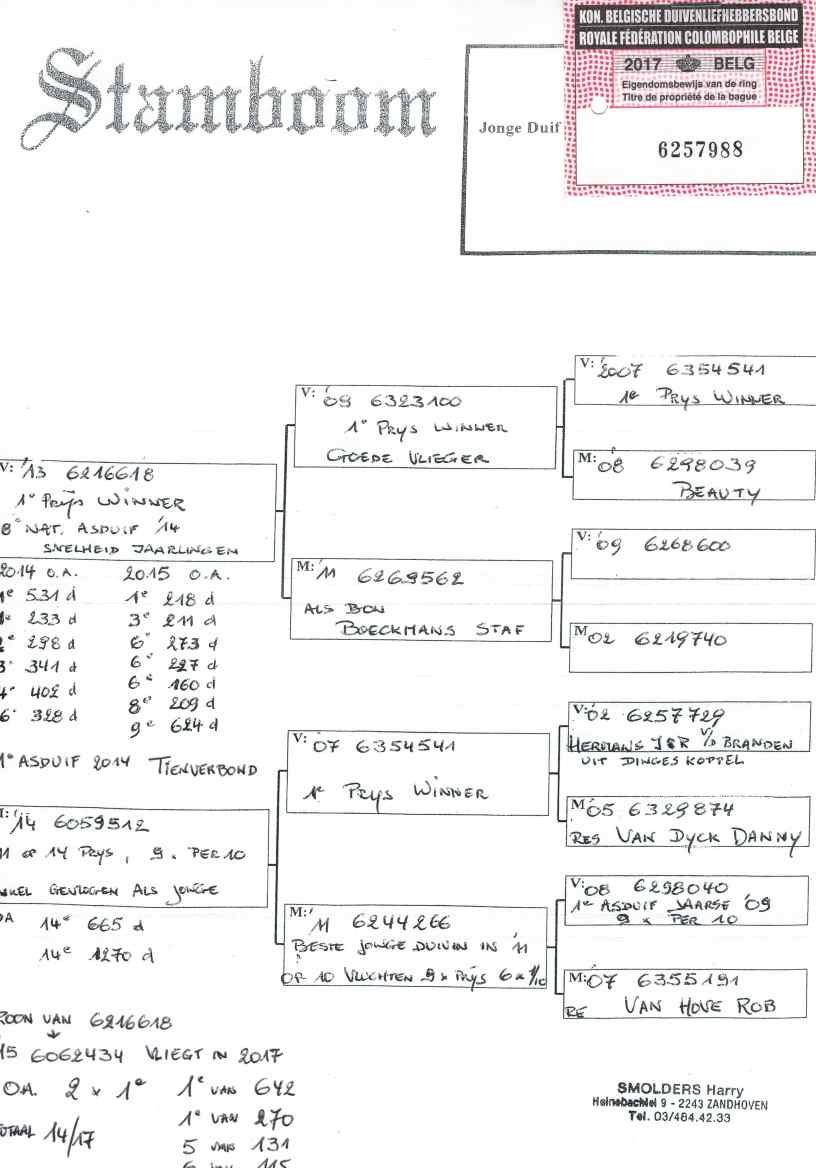 KON. BELGISCHE DUIVENLIEFHEBBERSBOND
ROYALE FÉDÉRATION COLOMBOPHILE BELGE
2017 BELG
Eigendomsbewijs van de ring
Titre de propriété de la bague
6257988
Stamboom
Jonge Duif
V: '13 6216618
1e Prijs WINNER
8° NAT. ASDUIF '14
SNELHEID JAARLINGEN
2014 O.A. 2015 O.A.
1e 531 d 1e 218 d
1e 233 d 3e 211 d
2e 298 d 6e 273 d
3e 341 d 6e 227 d
4e 402 d 6e 160 d
6e 328 d 8e 209 d
9e 624 d
1e ASDUIF 2014 TIENVERBOND
M: '14 6059512
11 op 14 Prys, 9 x PER 10
ENKEL GEVLOGEN ALS JONGE
OA 14e 665 d
14e 1270 d
ZOON VAN 6216618
15 6062434 VLIEGT IN 2017
O.A. 2 x 1e 1e VAN 642
1e VAN 270
TOTAAL 14/17
5 VAN 131
6 VAN 115
V: '09 6323100
1e PRYS WINNER
GOEDE VLIEGER
M: '11 6269562
ALS BON
BOECKMANS STAF
V: '07 6354541
1e PRYS WINNER
M: '11 6244266
BESTE JONGE DUIVIN IN '11
OP 10 VLUCHTEN 9 x PRIJS 6 x 1/10
V: '2007 6354541
1e PRYS WINNER
M: '08 6298039
BEAUTY
V: '09 6268600
M '02 6219740
V: '02 6257729
HERMANS J&R V/D BRANDEN
UIT DINGES KOPPEL
M '05 6329874
RES VAN DYCK DANNY
V: '08 6298040
1e ASDUIF JAARSE '09
9 x PER 10
M: '07 6355191
RE VAN HOVE ROB
SMOLDERS Harry
Heinebachlei 9 - 2243 ZANDHOVEN
Tel. 03/484.42.33